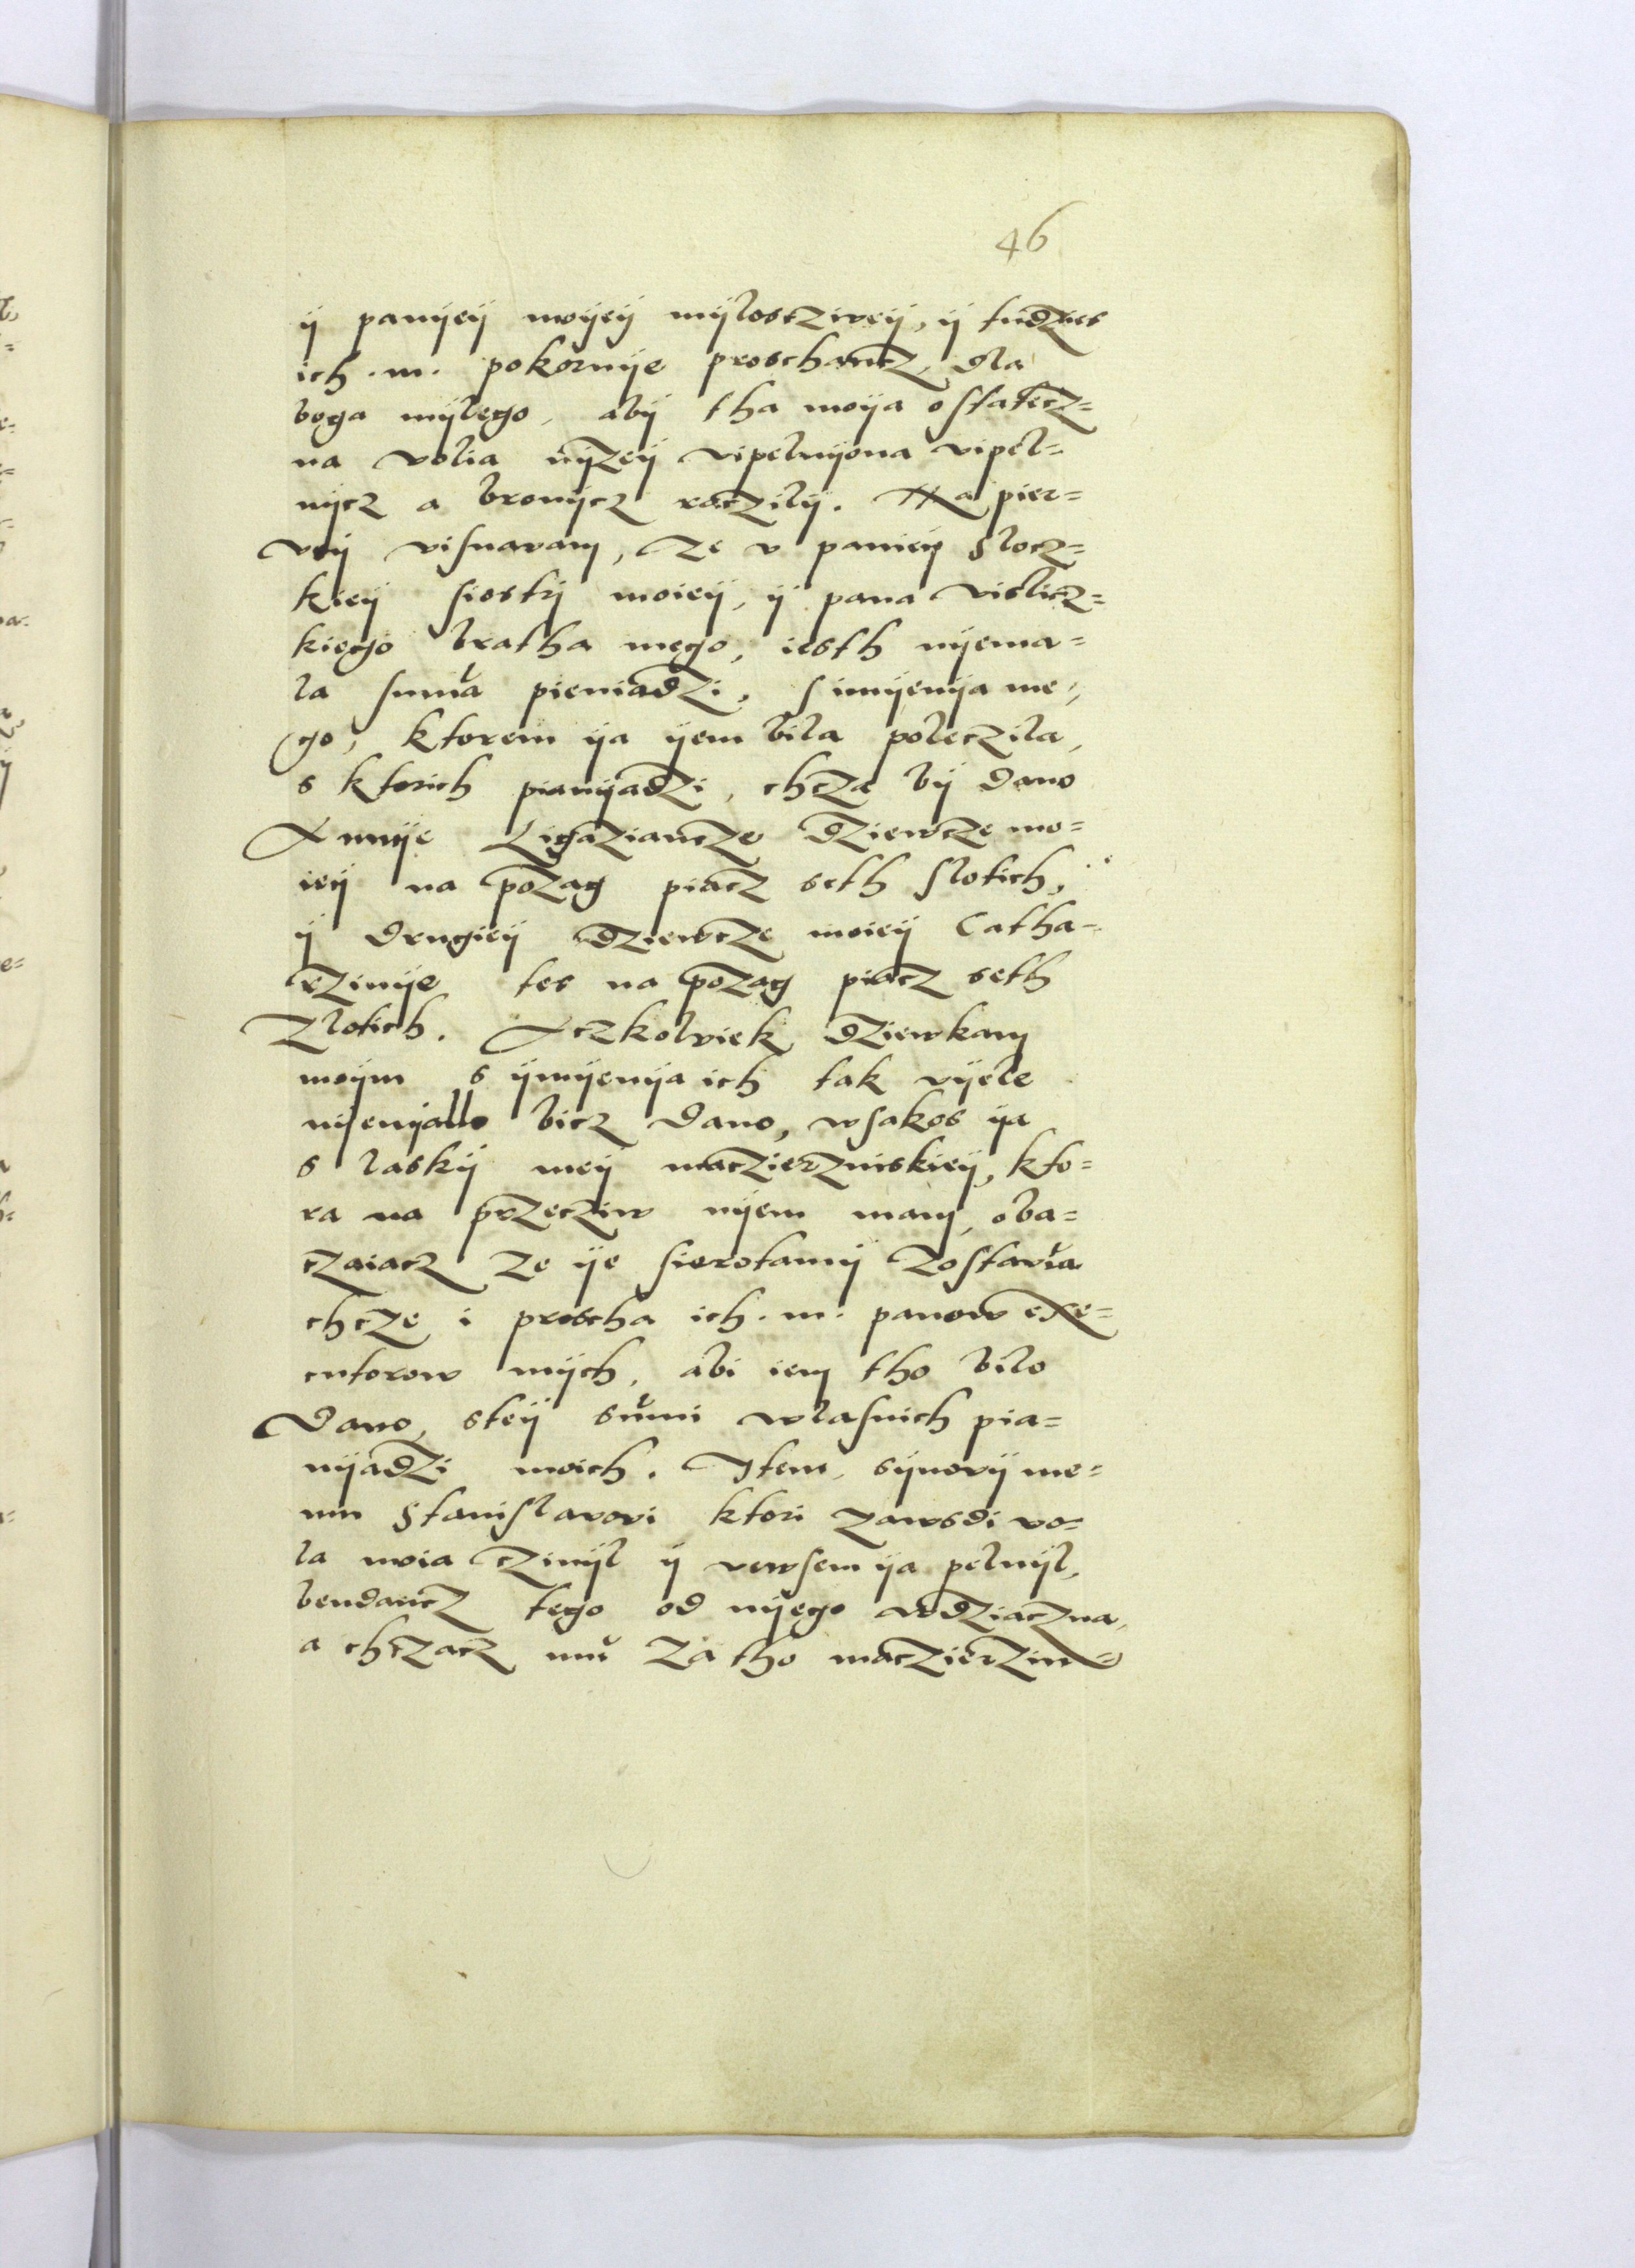 46
ÿ panÿeÿ moÿeÿ mÿlostziveÿ, ÿ tudzies
ich . m . pokornÿe proschantz, dla
boga mÿlego, abÿ tha moÿa ostatecz=
na volia nÿzeÿ vipelnÿona vipel=
nÿcz a bronÿcz racżilÿ. Na pier=
veÿ visnavam, ze v panieÿ Slocz=
kieÿ siostrÿ moieÿ, ÿ pana vislicz=
kiego bratha mego, iesth nÿema=
la suma pieniadzi, s imÿenÿa me=
go, ktorem ÿa ÿem bila poleczila,
s ktorich pianÿadzi, chcza bÿ dano
Annÿe Ligaziancze dziewcze mo=
ieÿ na pozag piacz seth slotich,
ÿ drugieÿ dziewcze moieÿ Catha=
rzinÿe tes na pozag piacz seth
zlotich. Aczkolviek dziewkam
moÿm s ÿmÿenÿa ich tak vÿele
nÿenÿallo bicz dano, wsakos ÿa
s laskÿ meÿ macżierzniskieÿ, kto=
ra na przecziw nÿem mam, oba=
czaiacz ze ÿe sierotamÿ zostavia
chcze i proscha ich . m . panow exe=
cutorow mÿch, abi iem tho bilo
dano, steÿ sumi wlasnich pia=
nÿadzi moich. Item, sÿnovÿ me=
mu Stanislavovi ktori zawsdi vo=
la moia czinÿl ÿ vewsem ÿa pelnÿl,
bendancz tego od nÿego wdziaczna,
a chczacz mu za tho maczierzin=